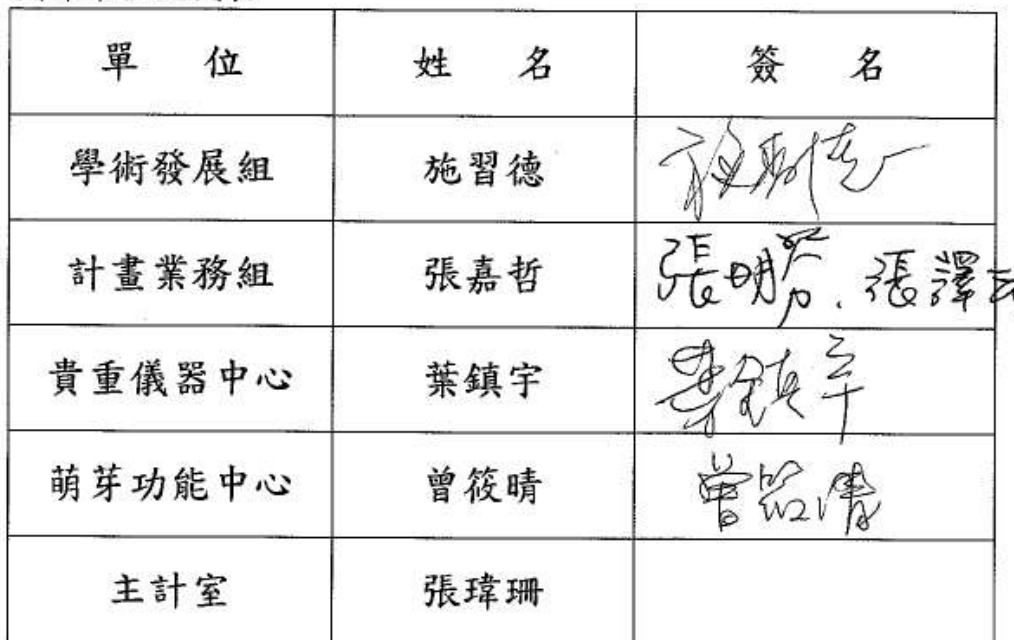 單位 姓名 簽名
學術發展組 施習德 施習德
計畫業務組 張嘉哲 張明 、張澤
貴重儀器中心 葉鎮宇 葉鎮宇
萌芽功能中心 曾筱晴 曾筱晴
主計室 張瑋珊